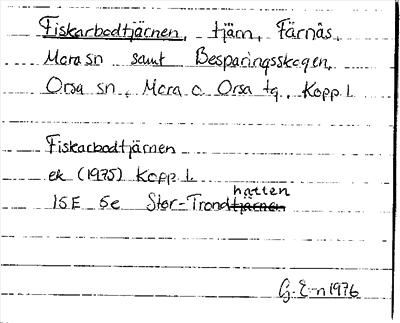 Fiskarbodtjärnen, tjärn, Färnäs,
Mora sn samt Besparingsskogen,
Orsa sn, Mora o. Orsa tg, Kopp. l.
Fiskarbodtjärnen
ek (1975) Kopp. l.
hatten
15E 5e Stor-Trondtjärnen
G. E-n 1976